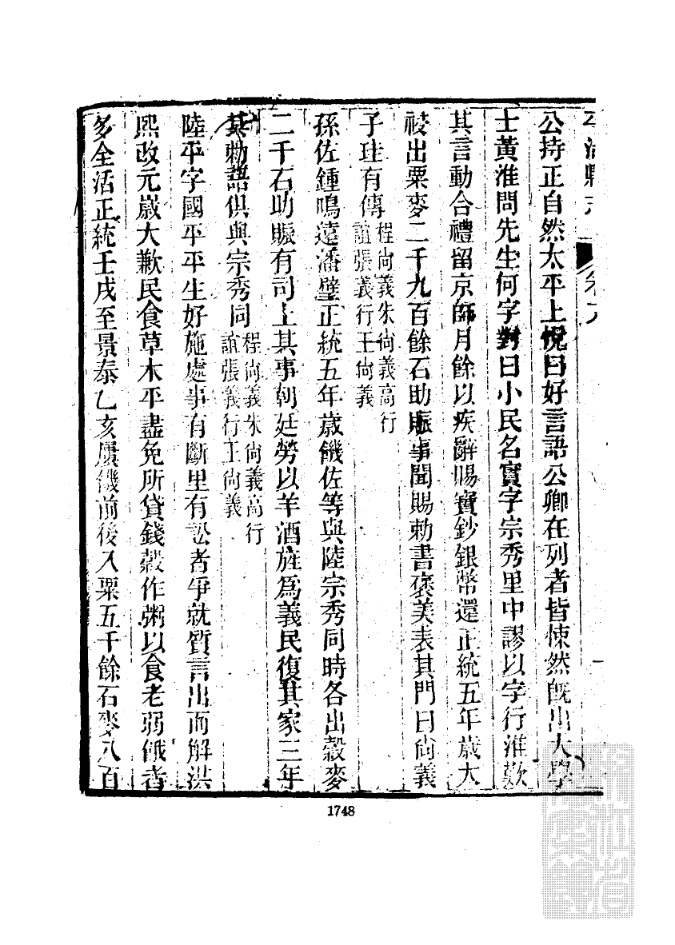 平湖縣志
卷八
公持正自然太平上悅曰好言語公卿在列者皆悚然既出大學
士黃淮問先生何字對曰小民名實字宗秀里中謬以字行淮歎
其言動合禮留京師月餘以疾辭賜寶鈔銀幣還正統五年歲大
祲出粟麥二千九百餘石助賑事聞賜勅書褒美表其門曰尙義
子珪有傳程尙義朱尙義高行
誼張義行王尙義
孫佐鍾鳴遠潘璧正統五年歲饑佐等與陸宗秀同時各出穀麥
二千石助賑有司上其事朝廷勞以羊酒旌爲義民復其家三年
其勅語俱與宗秀同程尙義朱尙義高行
誼張義行王尙義
陸平字國平平生好施處事有斷里有訟者爭就質言出而解洪
熙改元歲大歉民食草木平盡免所貸錢穀作粥以食老弱俄者
多全活正統壬戌至景泰乙亥屢饑前後入粟五千餘石麥八百
1748